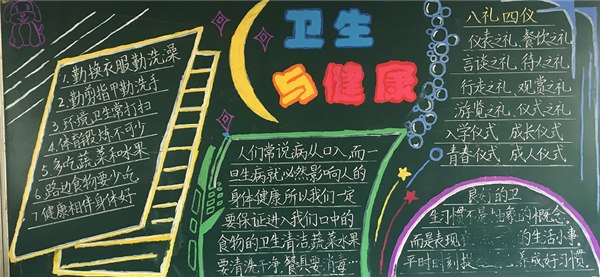 卫生
与健康
1.勤换衣服勤洗澡
2.勤剪指甲勤洗手
3.环境卫生常打扫
4.体育锻炼不可少
5.多吃蔬菜和水果
6.路边食物要少吃
7.健康相伴身体好
人们常说病从口入,而一
旦生病就必然影响人的
身体健康,所以我们一定
要保证进入我们口中的
食物的卫生清洁,蔬菜水果
要清洗干净,餐具要消毒…
八礼四仪
仪表之礼、餐饮之礼
言谈之礼、待人之礼
行走之礼、观赏之礼
游览之礼、仪式之礼
入学仪式 成长仪式
青春仪式 成人仪式
良好的卫
生习惯不是抽象的概念,
而是表现 的生活小事。
平时 养成好习惯。